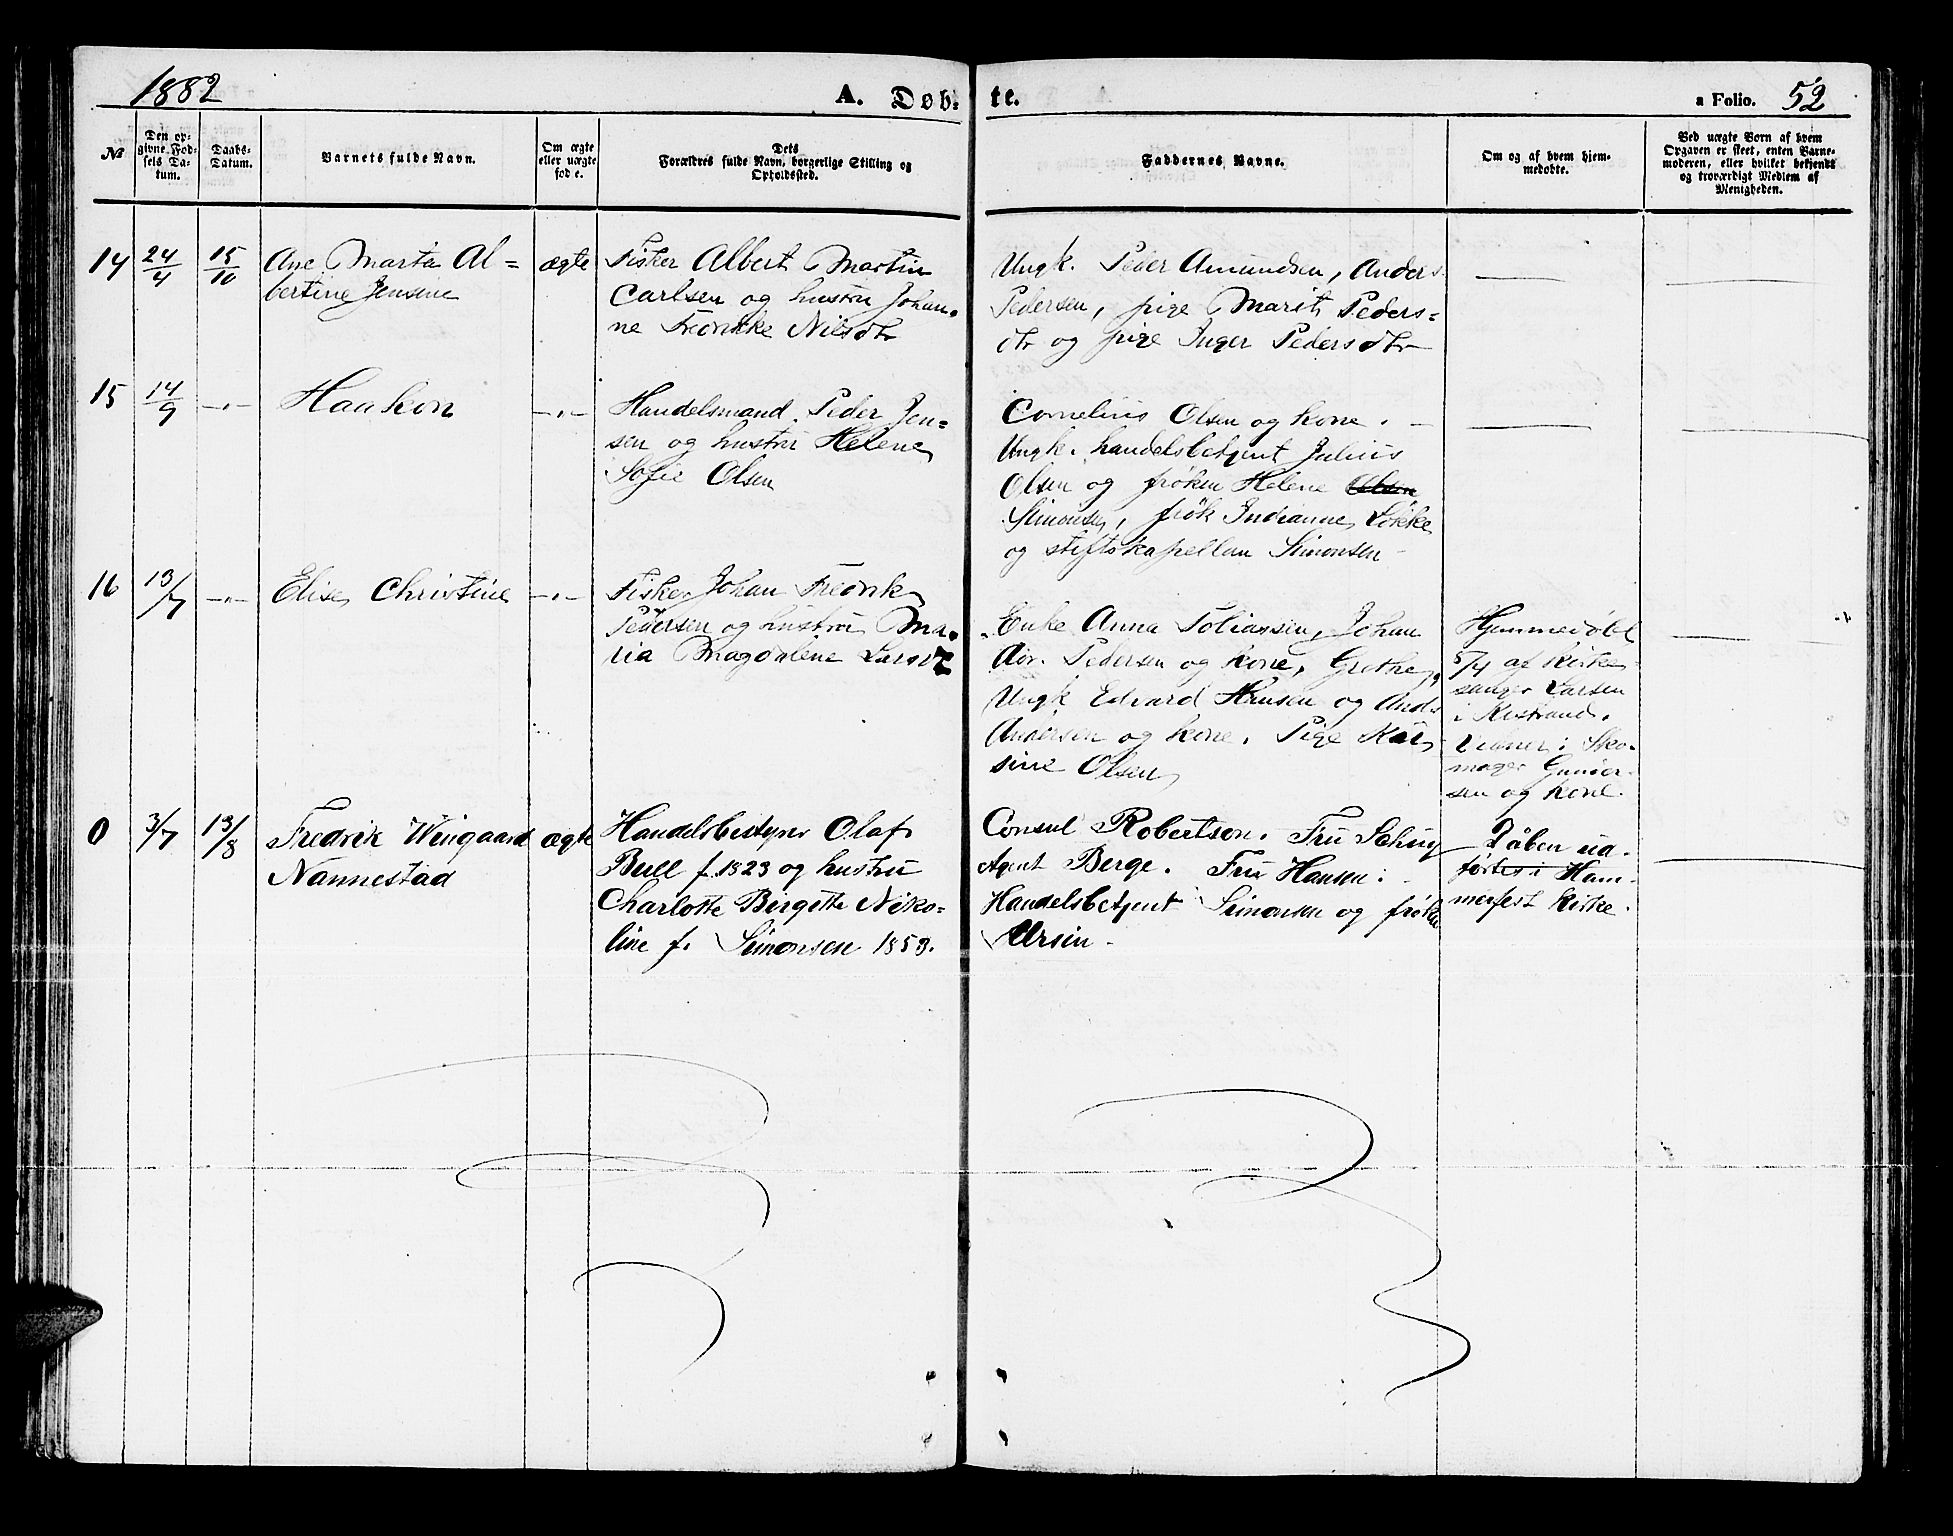 1882
A. Døb-
te.
a Folio. 52
№
Den op-
givne Fød-
sels Da-
tum.
Daabs-
Datum.
Barnets fulde Navn.
Om ægte
eller uægte
fød e.
Dets
Forældres fulde Navn, borgerlige Stilling og
Opholdssted.
Faddernes Navne.
Om og af hvem hjem-
medøbte.
Ved uægte Børn af hvem
Opgaven er skeet, enten Barne-
moderen, eller hvilket bekjendt
og troværdigt Medlem af
Menigheden.
14
24/4
15/10
Ane Marta Al=
bertine Jensine
ægte
Fisker Albert Martin
Carlsen og hustru Johan-
ne Fredrikke Nilsdtr
Ungk. Peder Amundsen, Anders
Pedersen, pige Marit Peders=
dtr og pige Inger Pedersdtr
15
14/9
-"-
Haakon
-"-
Handelsmand Peder Jen=
sen og hustru Helene
Sofie Olsen
Cornelius Olsen og kone.
Ungk. handelsbetjent Julius
Olsen og frøken Helene Olsen
Simonsen, frøk Indianne Løkke
og stiftskapellan Simonsen
16
13/7
-"-
Elise Christine
-"-
Fisker Johan Fredrik
Pedersen og hustru Ma-
ria Magdalene Larsd
Enke Anna Tobiassen, Johan
Adr. Pedersen og kone, Grethe,
Ungk Edvard Hansen og And.
Andersen og kone. Pige Kar
sine Olsen
Hjemmedøbt
5/4 af kirke
sanger Larsen
i Kistrand.
Vidner: Sko-
mager Gunder-
sen og kone.
0
3/7
13/8
Fredrik Wingaard
Nannestad
ægte
Handelsbestyrer Olaf
Bull f. 1823 og hustru
Charlotte Birgitte Niko=
line f. Simonsen 1853.
Consul Robertson. Fru Schug
Agent Berge. Fru Hansen.
Handelsbetjent Simonsen og frøken
Ursin
Dåben ud-
førtes i Ham-
merfest kirke.